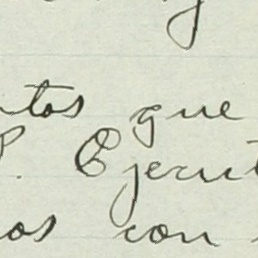 tos que
P. Ejecut
os con